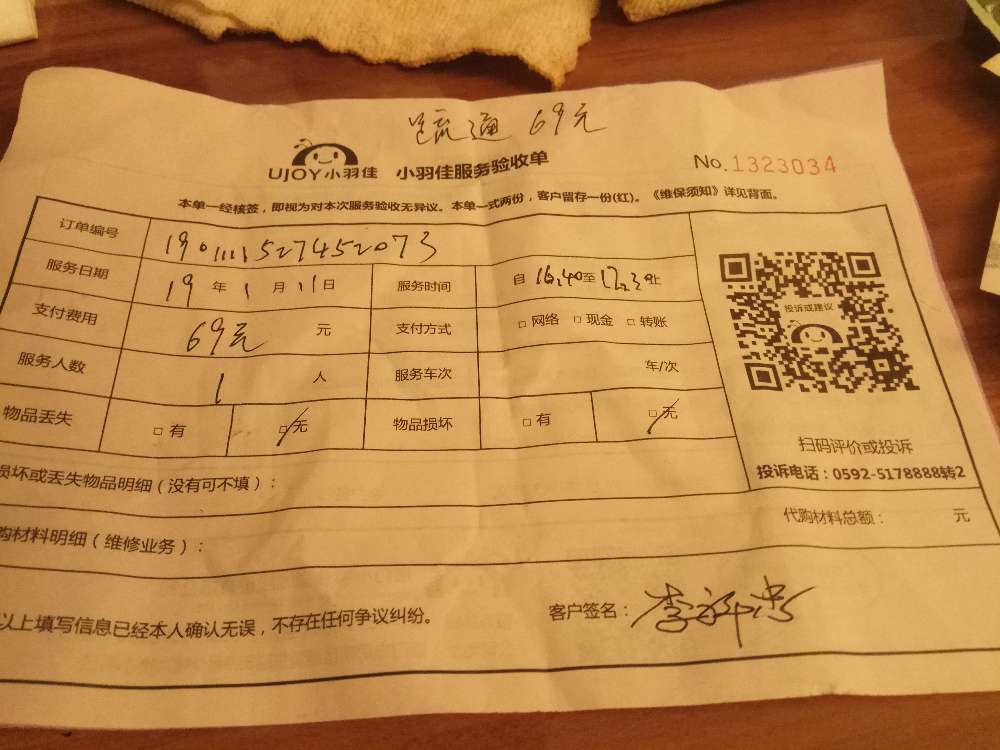 疏通 69元
UJOY小羽佳 小羽佳服务验收单 No.1323034
本单一经核签，即视为对本次服务验收无异议。本单一式两份，客户留存一份(红)。《维保须知》详见背面。
订单编号 1901111527452073
服务日期 19年1月11日 服务时间 自16:40至17:30止
支付费用 69元 元 支付方式 □网络 □现金 □转账
服务人数 1人 服务车次 车/次
物品丢失 □有 □无 物品损坏 □有 □无
投诉或建议
扫码评价或投诉
投诉电话：0592-5178888转2
损坏或丢失物品明细（没有可不填）：
代购材料总额： 元
购材料明细（维修业务）：
以上填写信息已经本人确认无误，不存在任何争议纠纷。
客户签名：